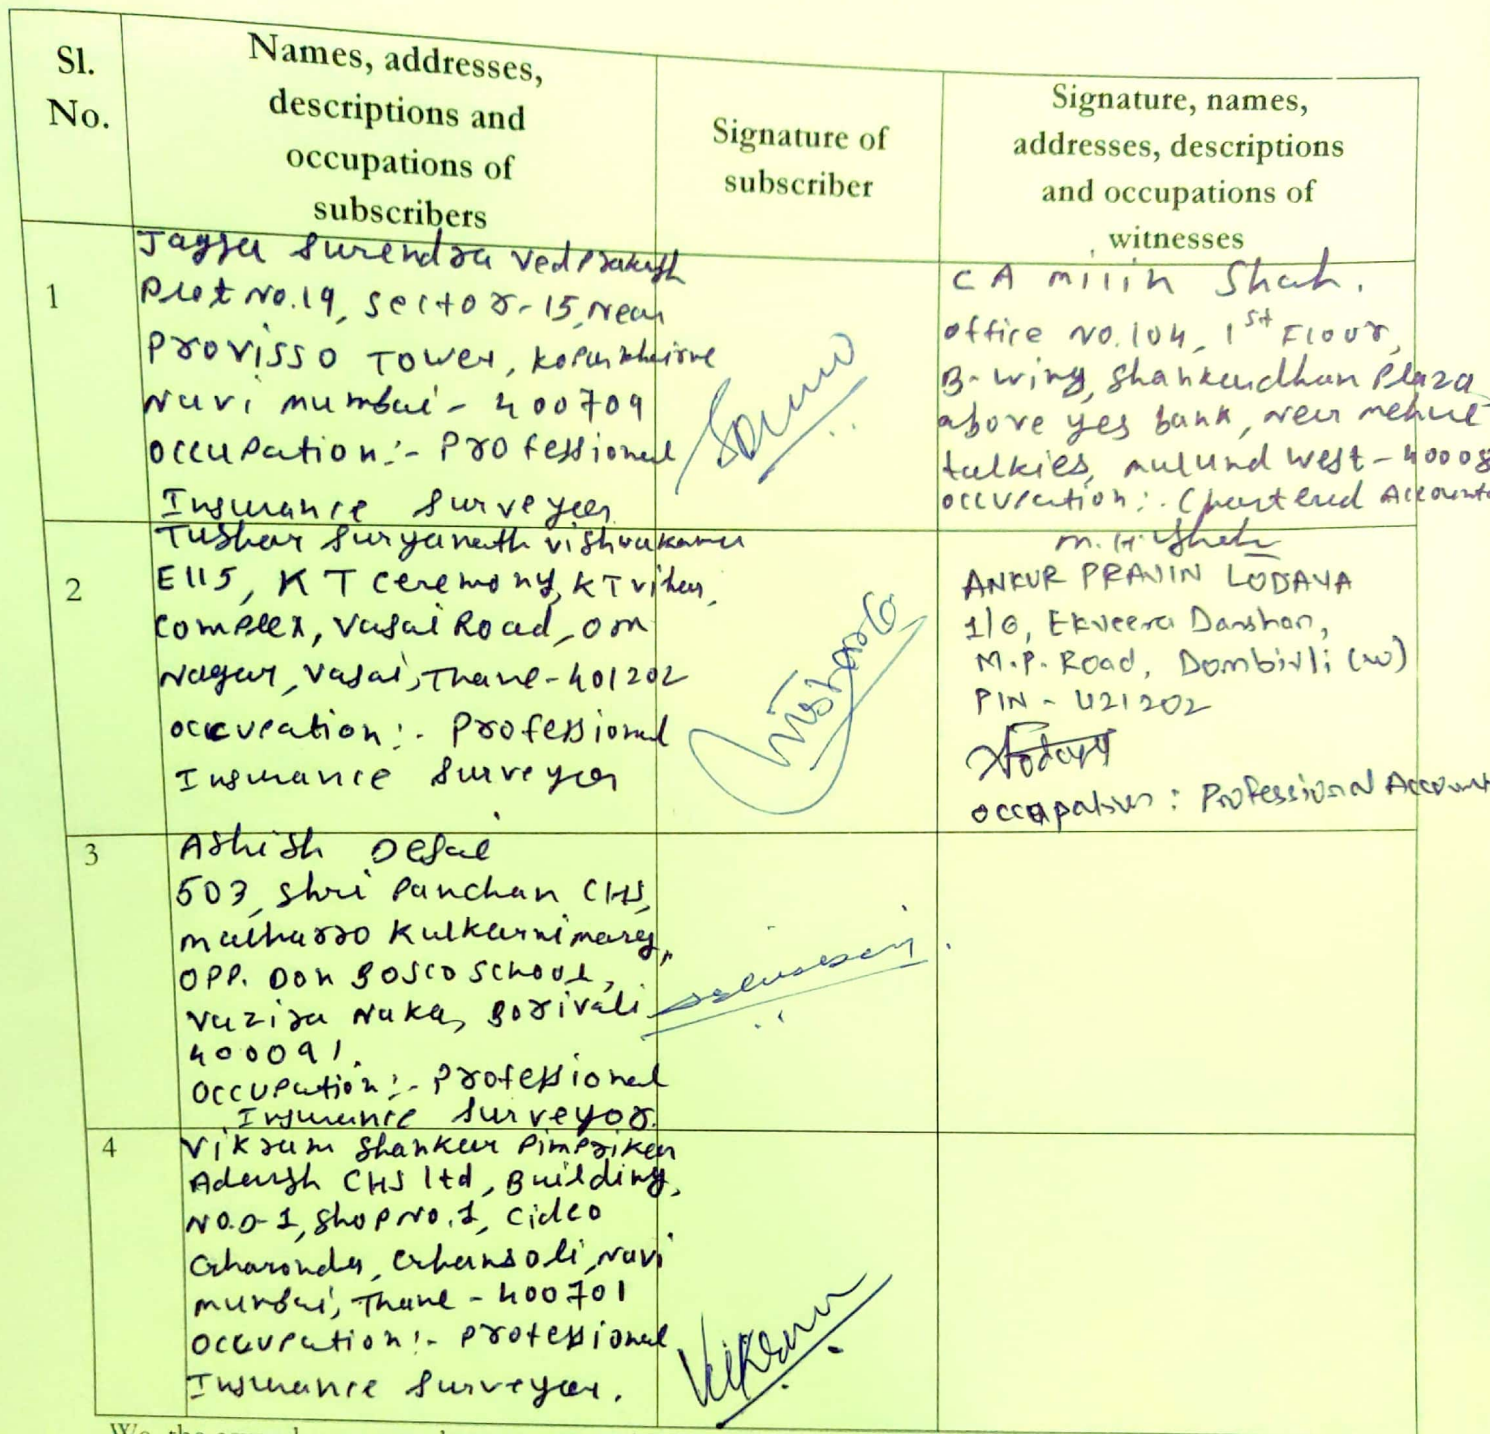 Sl.
No.
Names, addresses,
descriptions and
occupations of
subscribers
Signature of
subscriber
Signature, names,
addresses, descriptions
and occupations of
witnesses
1
Surendra Vedprakash
Plot No.19, Sector-15, Near
Provisso Tower, Koparkhairne
Navi mumbai - 400709
Occupation:- Professional
Insurance Surveyor
CA Milin Shah.
office No.104, 1st Floor,
B-wing, Shankardhan Plaza
above yes bank, near mehul
talkies, mulund West - 40008
Occupation:- Chartered Accounta
M.H.Shah
2
Tushar Suryanath Vishwakarma
E115, KT Ceremony, KT vihar,
Complex, Vasai Road, Om
Nagar, Vasai, Thane-401202
occupation:- Professional
Insurance Surveyor
ANKUR PRAVIN LODAYA
1/6, Ekveera Darshan,
M.P. Road, Dombivli (w)
PIN - 421202
Occupation: Professional Account
3
Ashish Desai
503, Shri Panchan CHS,
malharro Kulkarni marg,
OPP. Don Bosco School,
Vazira Naka, Borivali
400091.
Occupation:- Professional
Insurance Surveyor.
4
Vikram Shankar Pimprikar
Adarsh CHS ltd, Building,
No.D-1, Shop No.1, Cidco
Gharonda, Ghansoli, Navi
mumbai, Thane - 400701
Occupation:- Professional
Insurance Surveyor.
Vikram